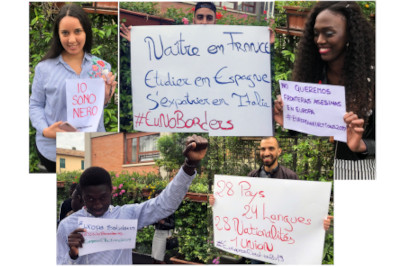 IO
SONO
NERO
Naître en France
Etudier en Espagne
S'expatrier en Italie
#EuNoBorders
NO QUEREMOS
FRONTERAS ASESINAS
EN EUROPA
28 Pays
24 Langues
28 Nationalités
1 Union